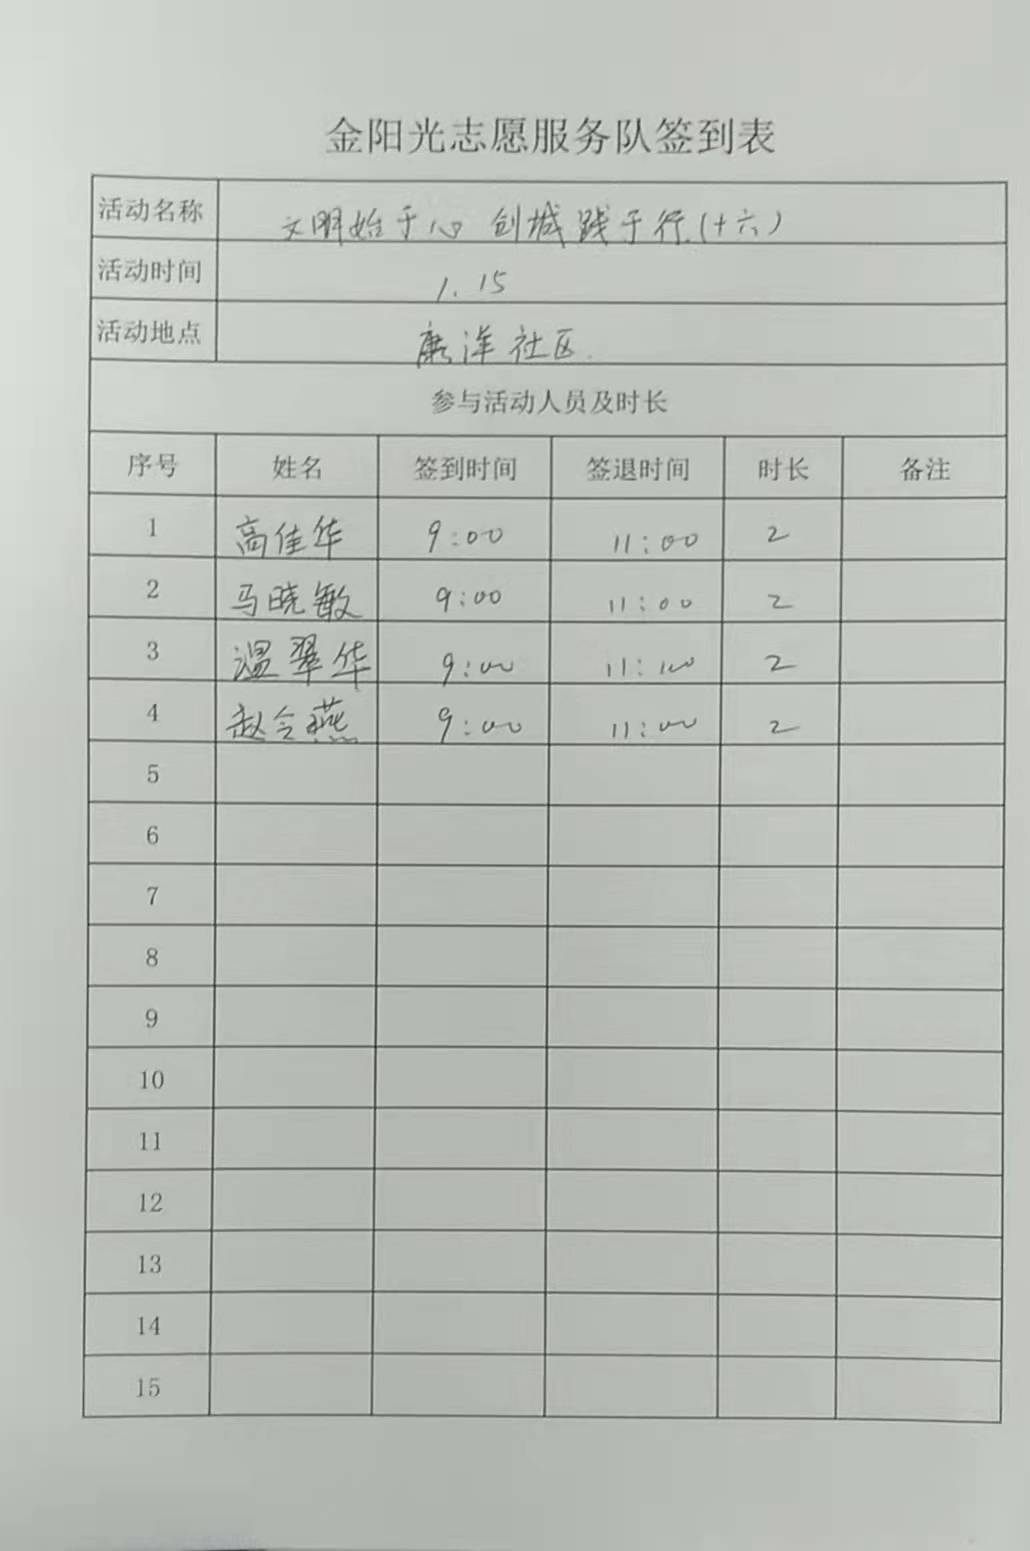 金阳光志愿服务队签到表
活动名称 文明始于心 创城践于行(十六)
活动时间 1.15
活动地点 康洋社区
参与活动人员及时长
序号 姓名 签到时间 签退时间 时长 备注
1 高佳华 9:00 11:00 2
2 马晓敏 9:00 11:00 2
3 温翠华 9:00 11:00 2
4 赵令燕 9:00 11:00 2
5
6
7
8
9
10
11
12
13
14
15